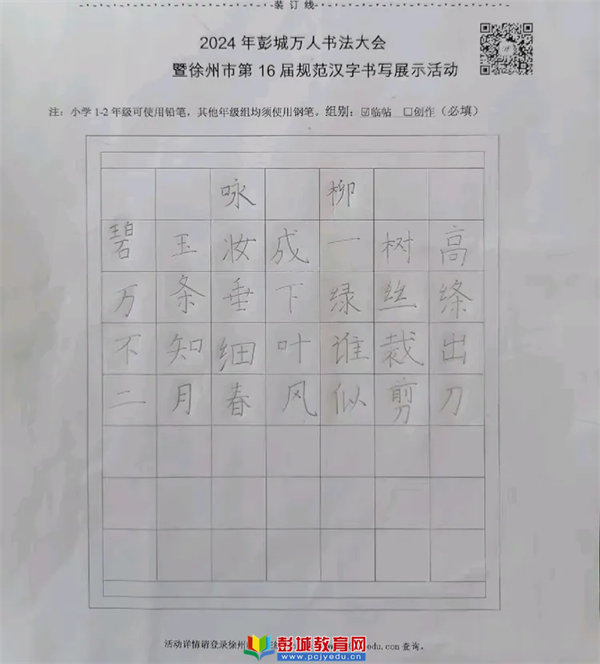 装 订 线
2024 年彭城万人书法大会
暨徐州市第 16 届规范汉字书写展示活动
注:小学 1-2 年级可使用铅笔,其他年级组均须使用钢笔。组别:☑临帖 ☐创作(必填)
咏 柳
碧 玉 妆 成 一 树 高
万 条 垂 下 绿 丝 绦
不 知 细 叶 谁 裁 出
二 月 春 风 似 剪 刀
活动详情请登录徐州 edu.com 查询。
彭城教育网
www.pcjyedu.com